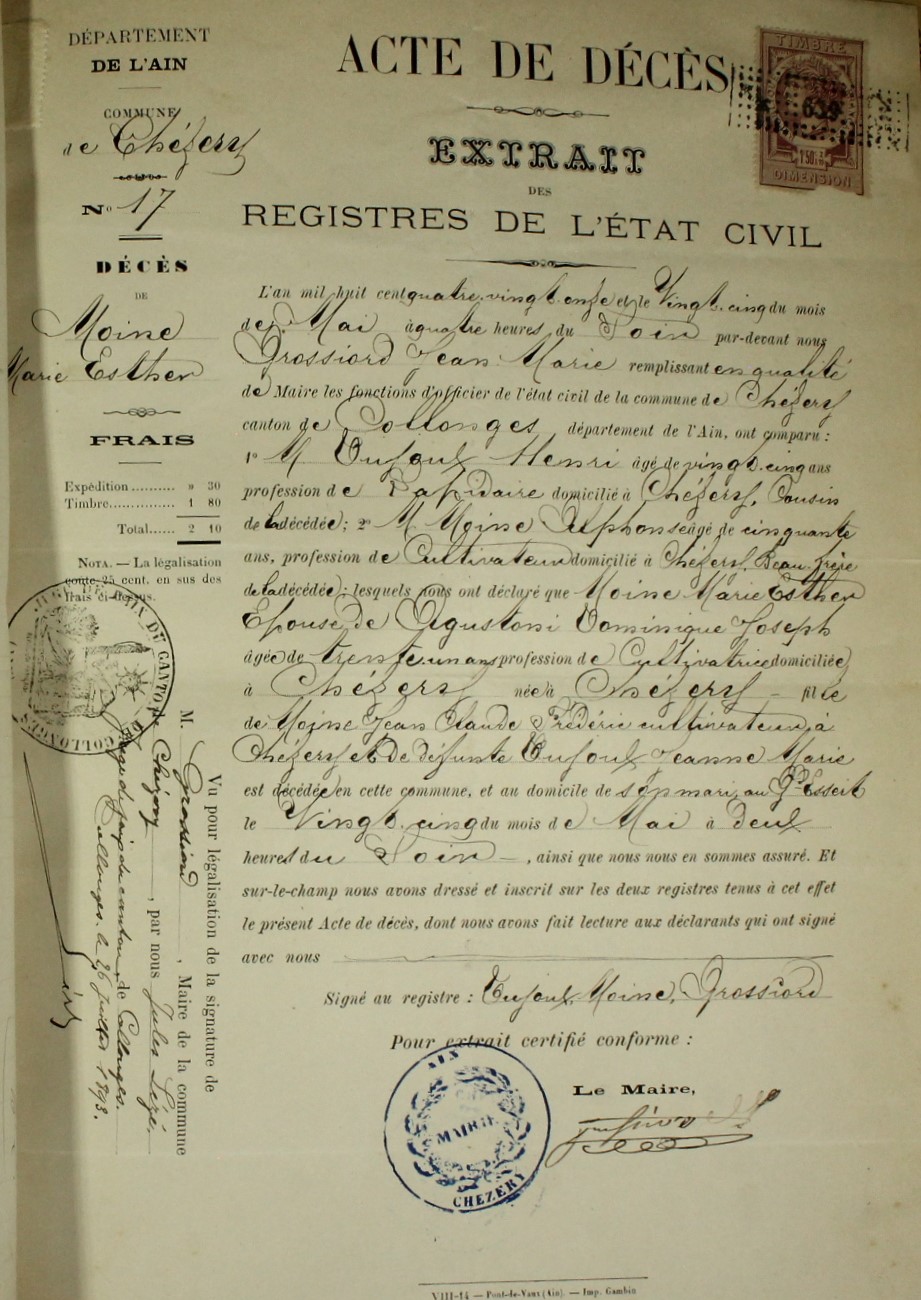 DÉPARTEMENT
DE L'AIN
COMMUNE
de Chézery
N° 17
DÉCÈS
DE
Moine
Marie Esther
FRAIS
Expédition.......... » 30
Timbre.............. 1 80
Total...... 2 10
NOTA. — La légalisation
coûte 25 cent. en sus des
frais ci-dessus.
ACTE DE DÉCÈS
EXTRAIT
DES
REGISTRES DE L'ÉTAT CIVIL
TIMBRE
639
1 50
DIMENSION
L'an mil huit cent quatre-vingt onze et le Vingt-cinq du mois
de Mai à quatre heures du Soir par-devant nous
Grossiord Jean Marie remplissant en qualité
de Maire les fonctions d'officier de l'état civil de la commune de Chézery
canton de Collonges, département de l'Ain, ont comparu :
1° M Tufoux Henri âgé de vingt-cinq ans
profession de Lapidaire domicilié à Chézery, Cousin
de la décédée; 2° M Moine Alphonse âgé de cinquante
ans, profession de Cultivateur domicilié à Chézery, Beau-frère
de la décédée; lesquels nous ont déclaré que Moine Marie Esther
Epouse de Agustoni Dominique Joseph
âgée de trente un ans profession de Cultivatrice domiciliée
à Chézery née à Chézery fille
de Moine Jean Claude Frédéric cultivateur à
Chézery et de défunte Tufoux Jeanne Marie
est décédée en cette commune, et au domicile de son mari, au
le Vingt-cinq du mois de Mai à deux
heures du Soir, ainsi que nous nous en sommes assuré. Et
sur-le-champ nous avons dressé et inscrit sur les deux registres tenus à cet effet
le présent Acte de décès, dont nous avons fait lecture aux déclarants qui ont signé
avec nous
Signé au registre : Tufoux, Moine, Grossiord
Pour extrait certifié conforme :
Le Maire,
AIN
MAIRIE
CHEZERY
Vu pour légalisation de la signature de
M. Grossiord, Maire de la commune
de Chézery, par nous Jules Lézé.
Juge de paix du canton de Collonges.
Collonges, le 26 juillet 1893.
DU CANTON
COLLONGES
VIII-14 — Pont-de-Vaux (Ain). — Imp. Gambin